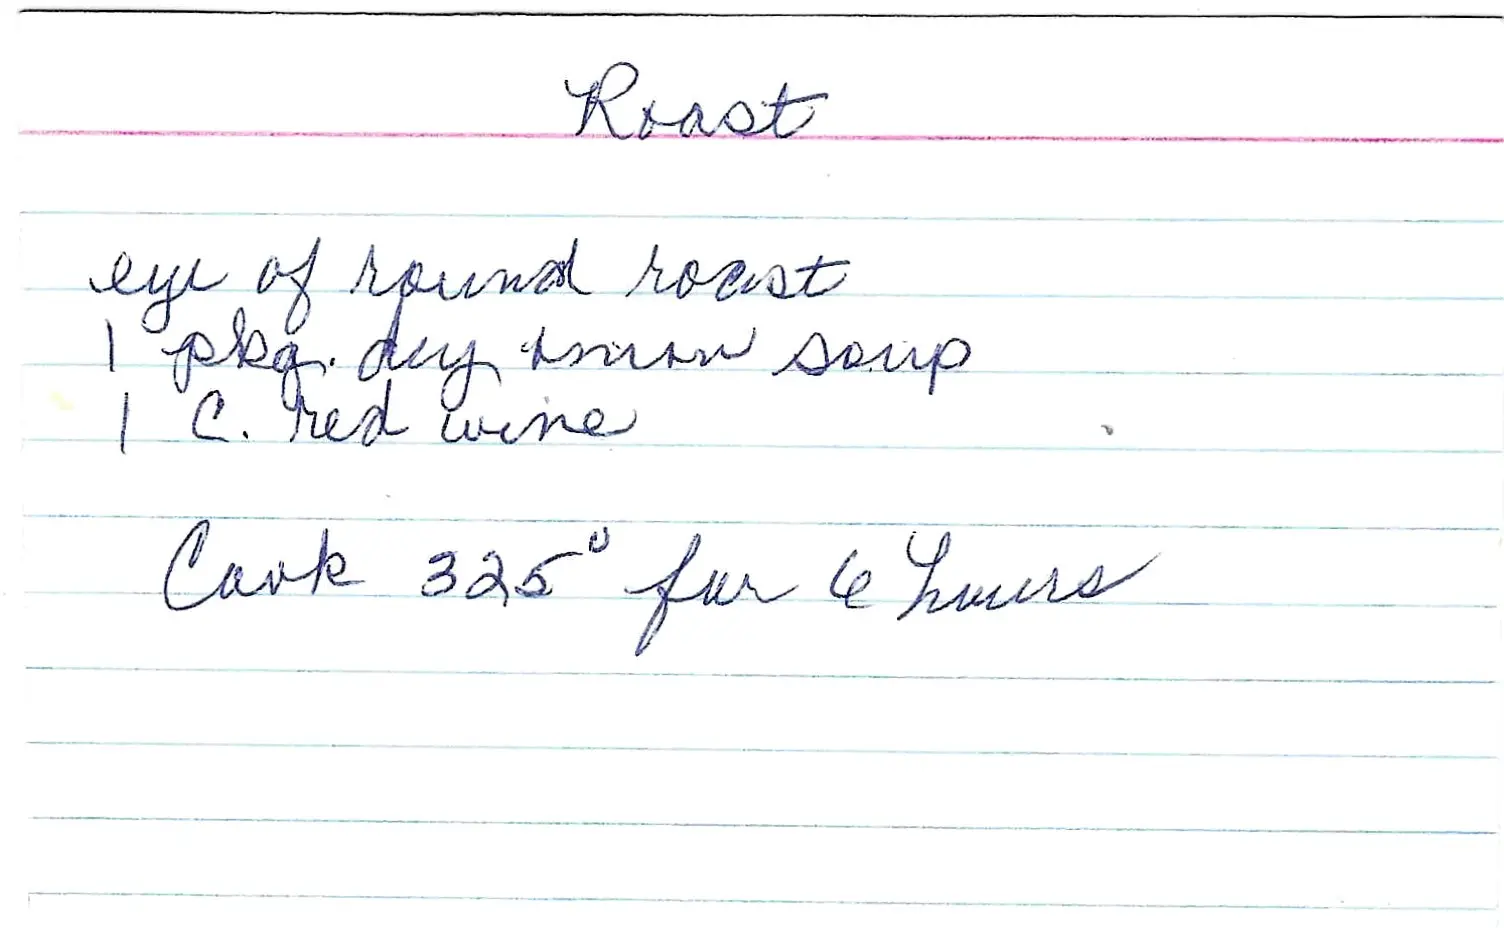 Roast
eye of round roast
1 pkg. dry onion soup
1 C. red wine
Cook 325° for 6 hours